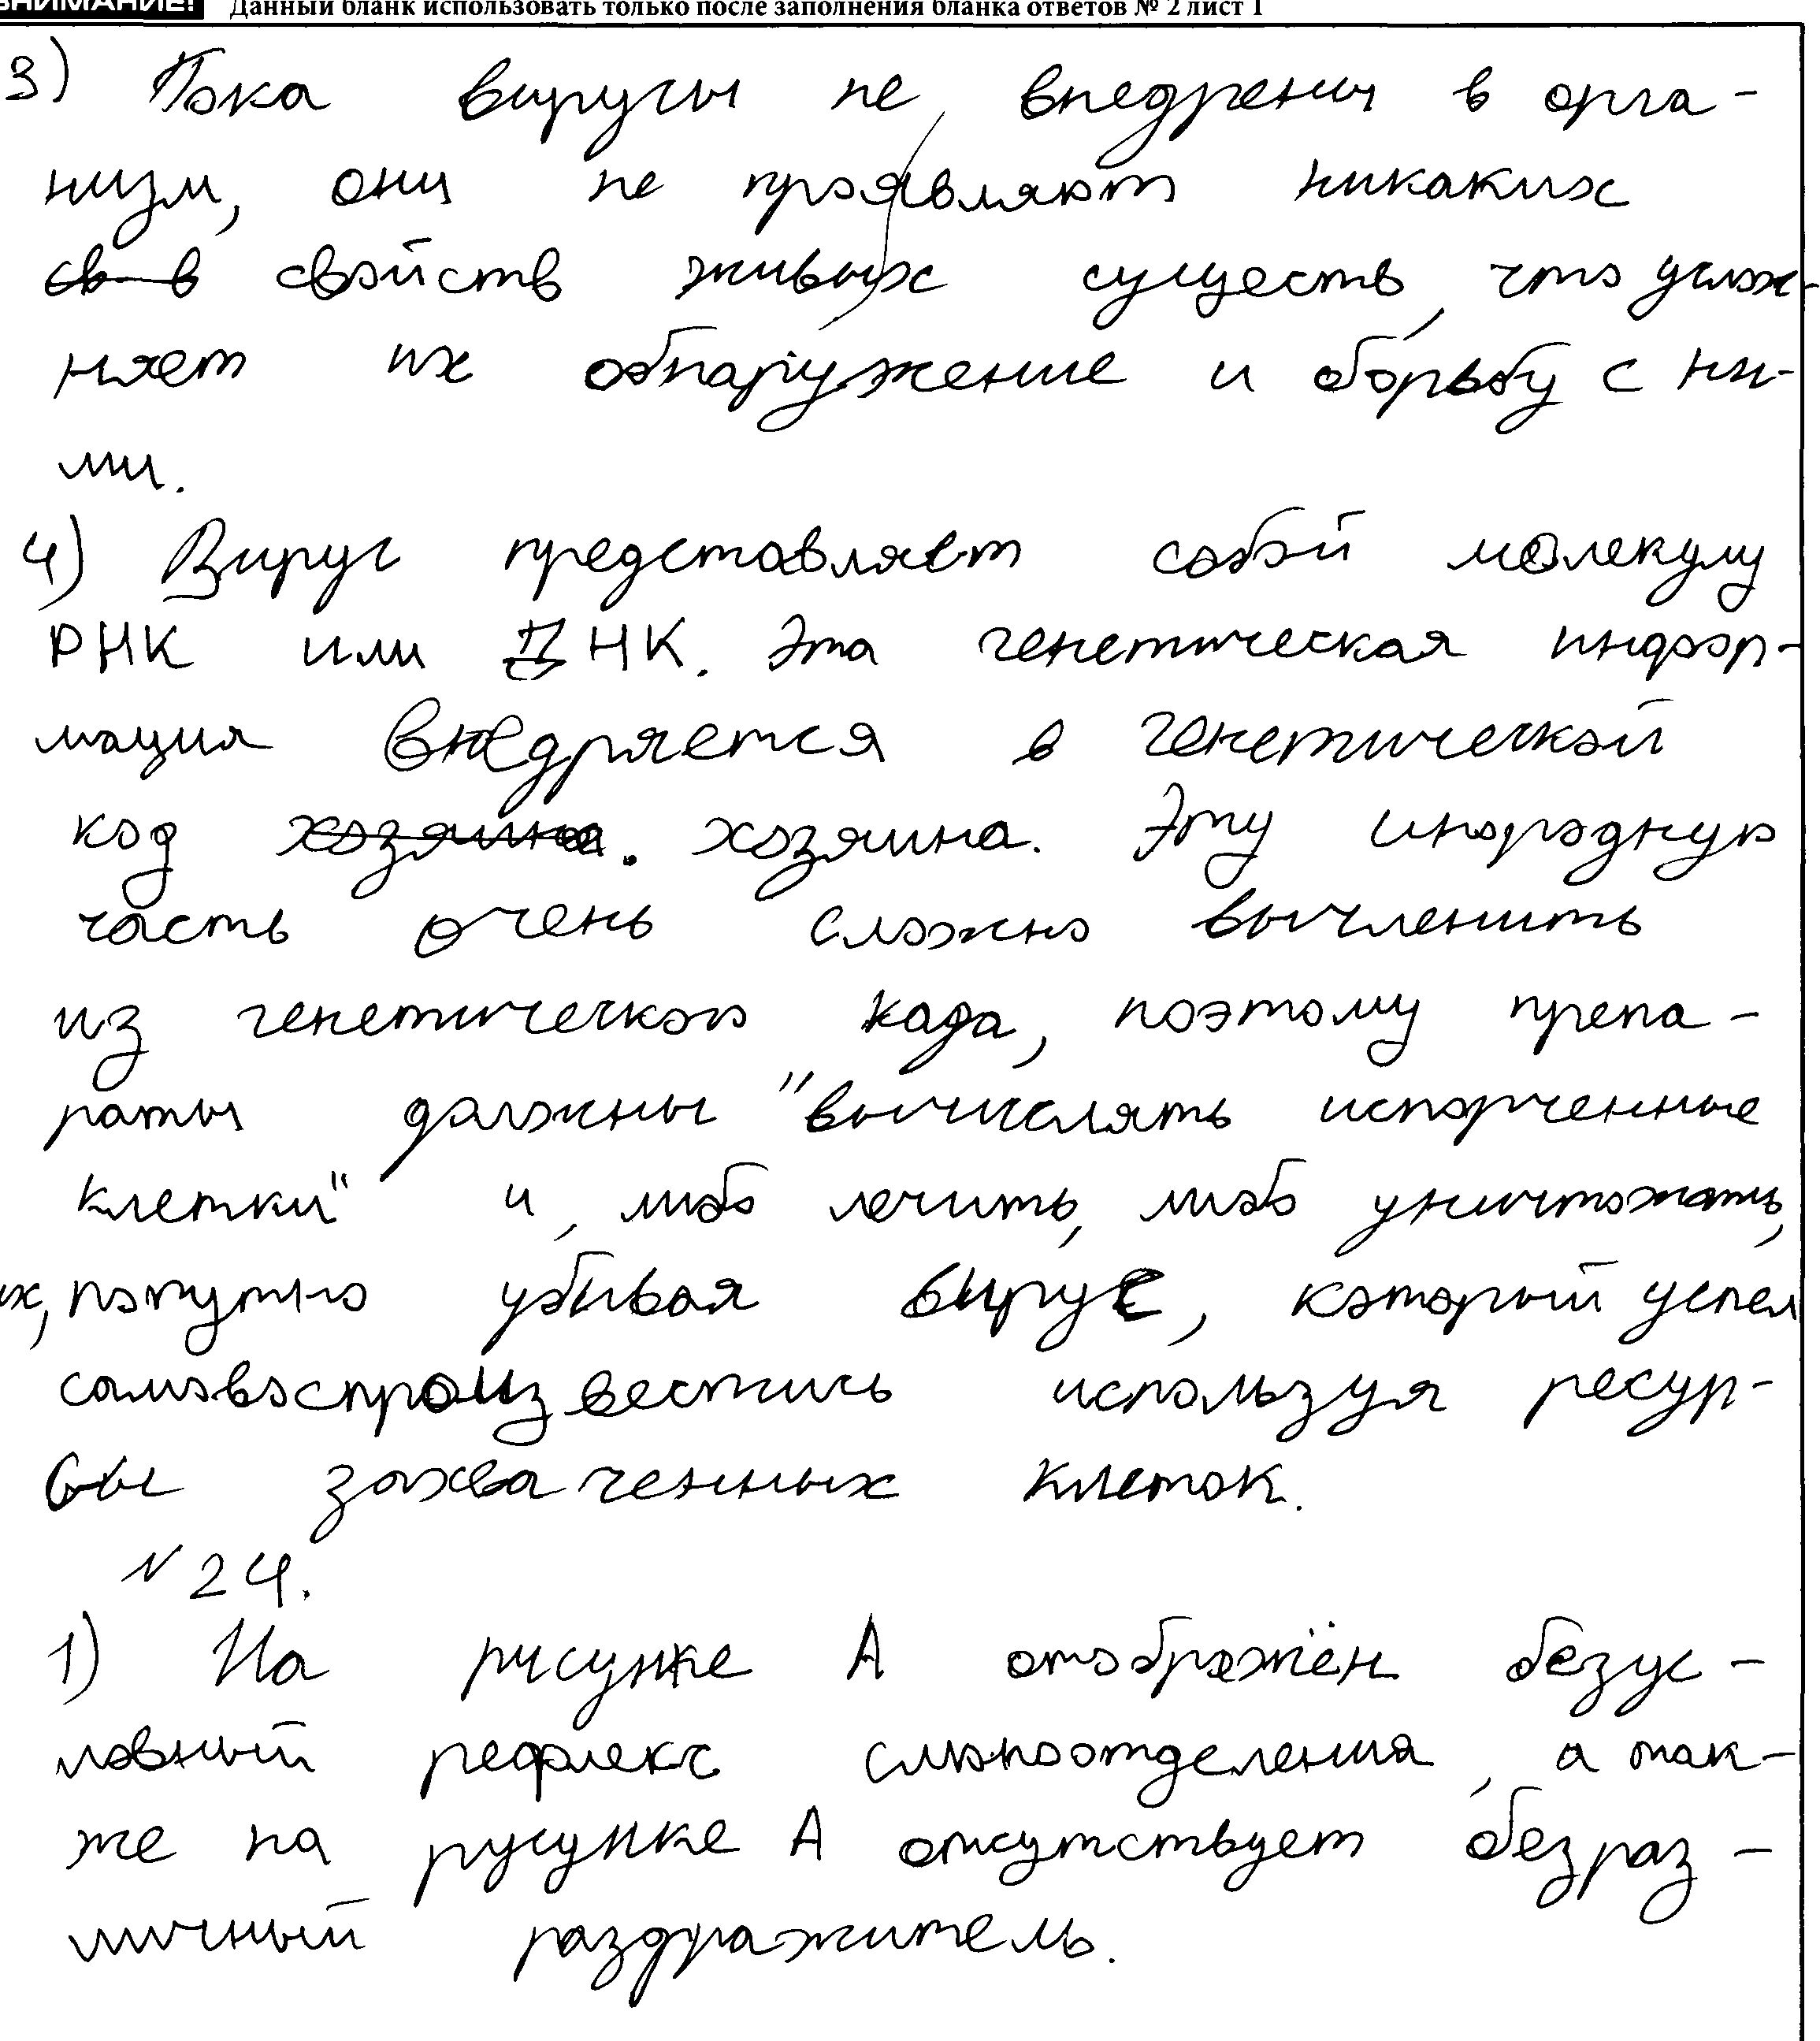 ВНИМАНИЕ! Данный бланк использовать только после заполнения бланка ответов № 2 лист 1
3) Пока вирусы не внедрены в орга-
низм, они не проявляют никаких
св в свойств живых существ, что услож-
няет их обнаружение и борьбу с ни-
ми.
4) Вирус представляет собой молекулу
РНК или ДНК. Эта генетическая инфор-
мация внедряется в генетической
код хозяина. хозяина. Эту инородную
часть очень сложно вычленить
из генетического кода, поэтому препа-
раты должны "вычислять испорченные
клетки" и, либо лечить, либо уничтожать
их, попутно убивая вирус, который успел
самовоспроизвестись используя ресур-
сы захваченных клеток.
№24.
1) На рисунке А отображён безус-
ловный рефлекс слюноотделения, а так-
же на русунке А отсутствует безраз-
личный раздражитель.